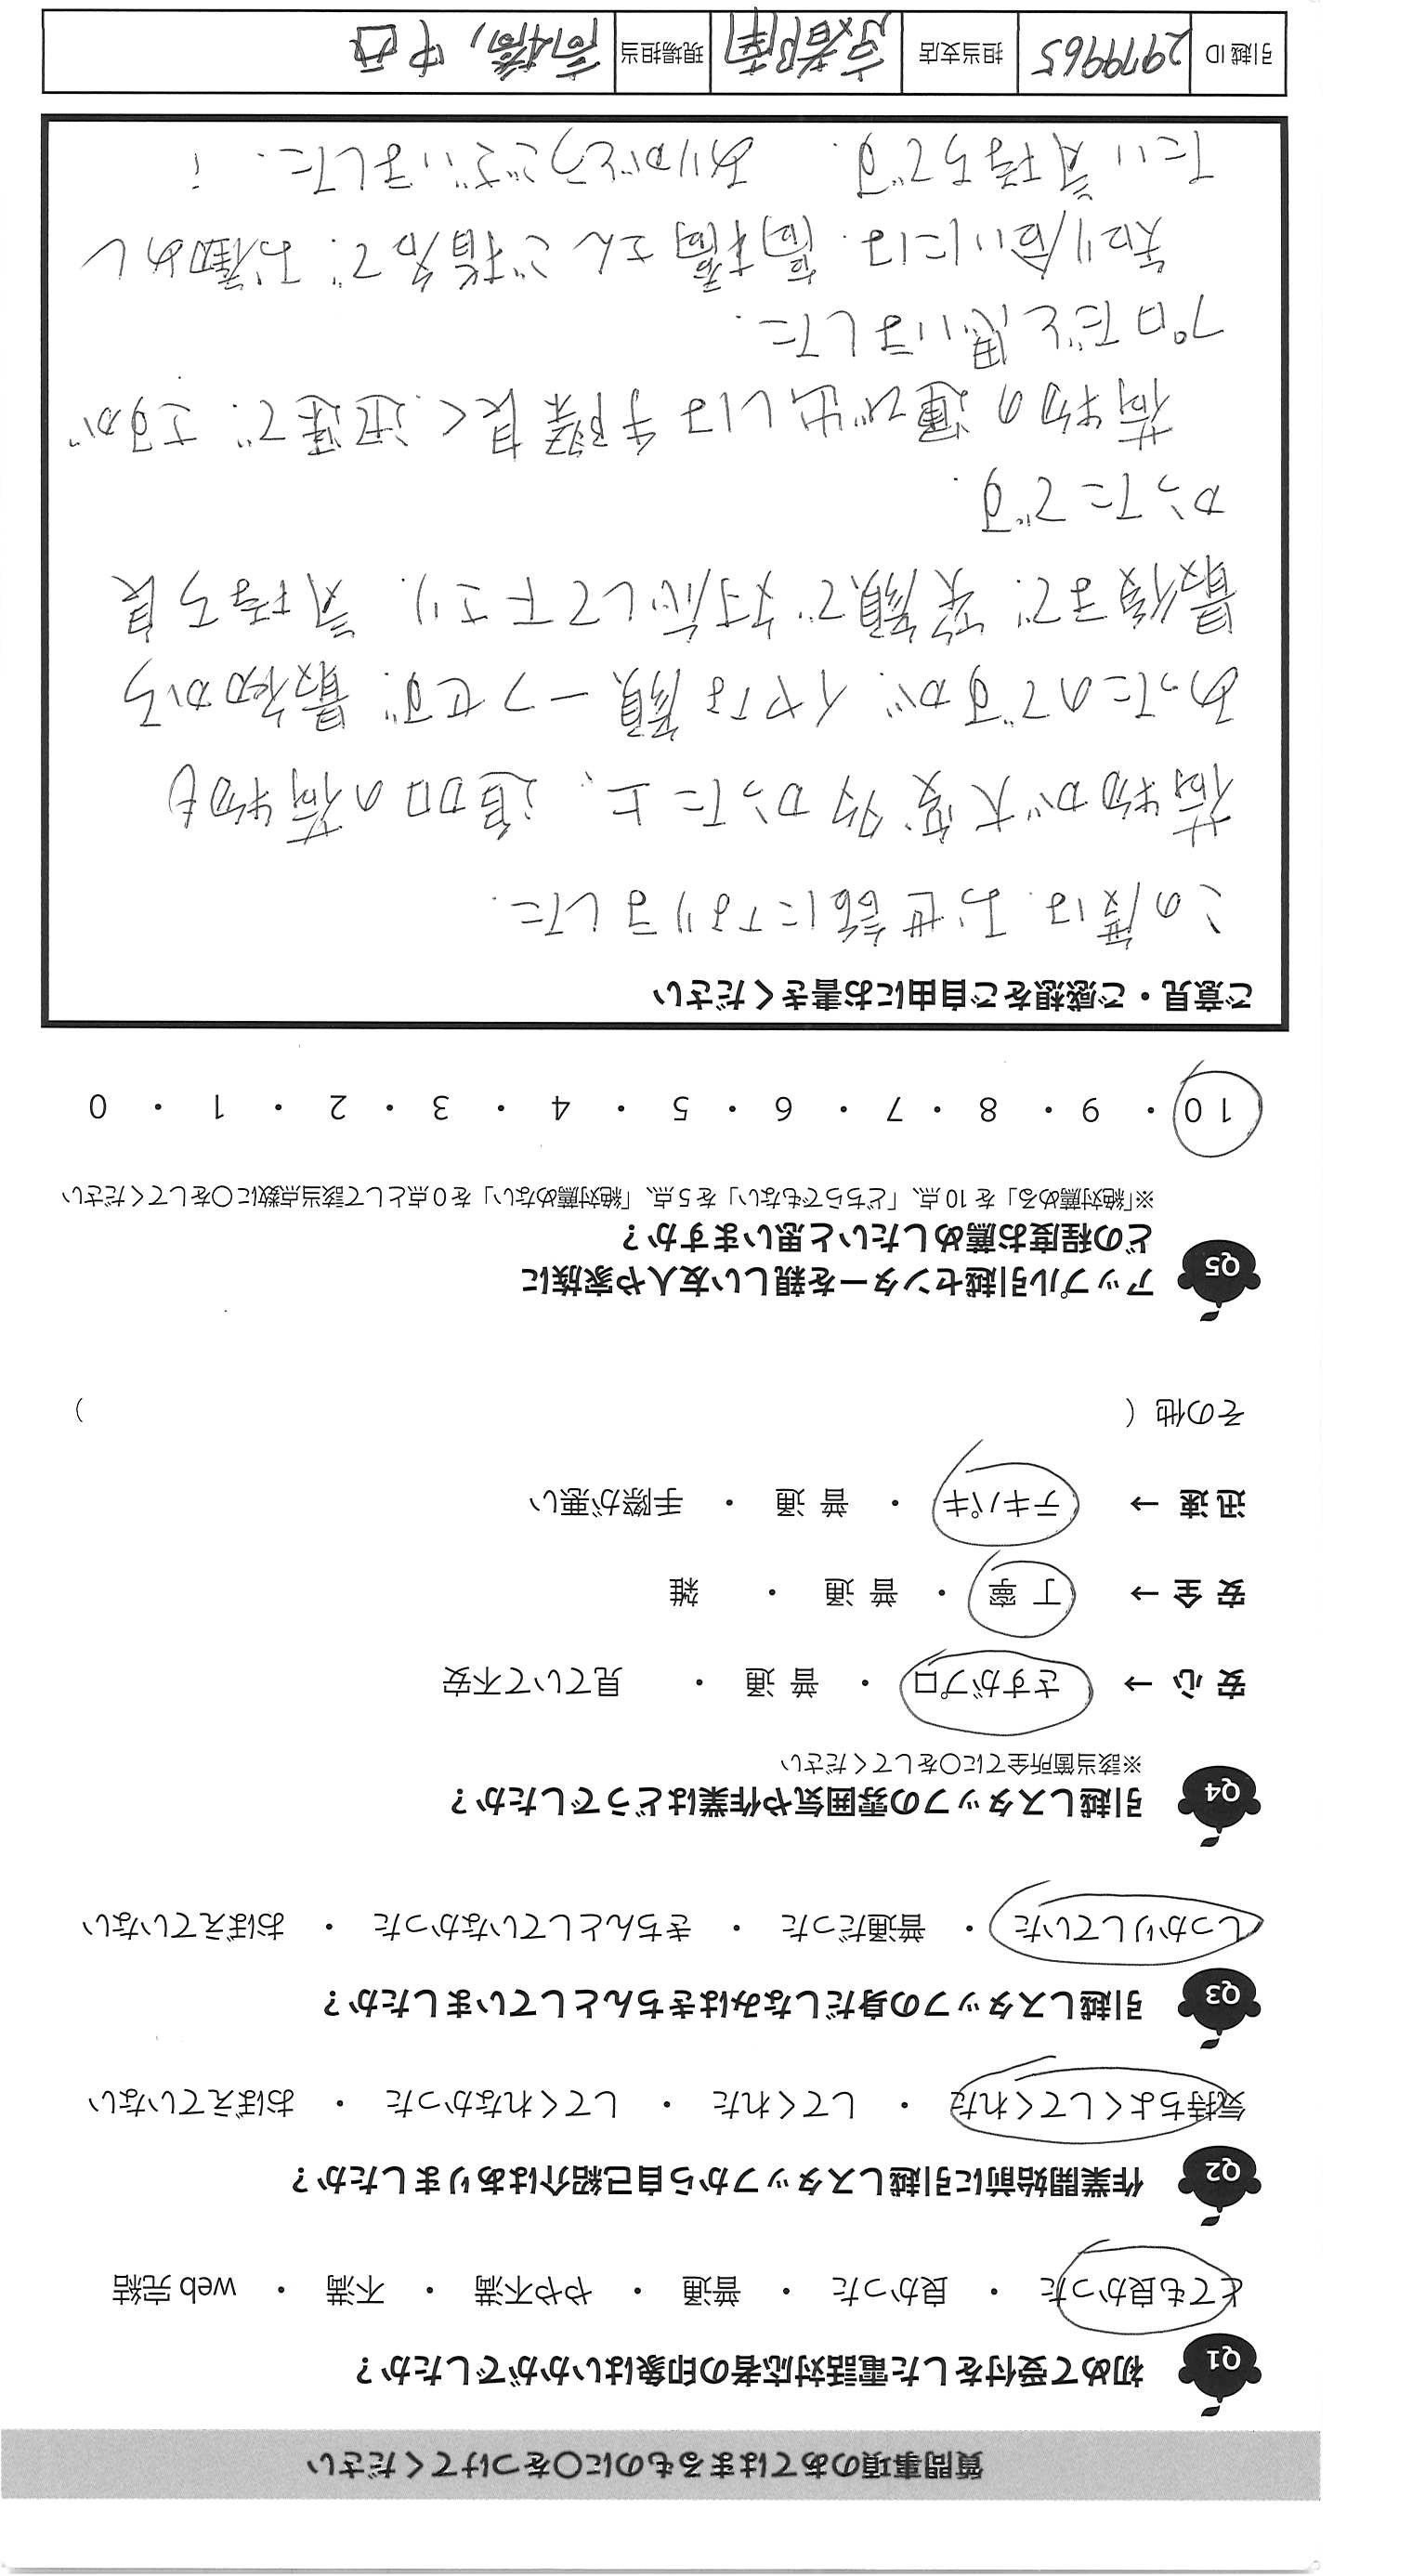 質問事項のあてはまるものに〇をつけてください
Q1 初めて受付をした電話対応者の印象はいかがでしたか？
とても良かった ・ 良かった ・ 普通 ・ やや不満 ・ 不満 ・ web 完結
Q2 作業開始前に引越しスタッフから自己紹介はありましたか？
気持ちよくしてくれた ・ してくれた ・ してくれなかった ・ おぼえていない
Q3 引越しスタッフの身だしなみはきちんとしていましたか？
しっかりしていた ・ 普通だった ・ きちんとしていなかった ・ おぼえていない
Q4 引越しスタッフの雰囲気や作業はどうでしたか？
※該当箇所全てに〇をしてください
安 心 → さすがプロ ・ 普 通 ・ 見ていて不安
安 全 → 丁 寧 ・ 普 通 ・ 雑
迅 速 → テキパキ ・ 普 通 ・ 手際が悪い
その他（ ）
Q5 アップル引越センターを親しい友人や家族に
どの程度お薦めしたいと思いますか？
※「絶対薦める」を 10 点、「どちらでもない」を 5 点、「絶対薦めない」を 0 点として該当点数に〇をしてください
10 ・ 9 ・ 8 ・ 7 ・ 6 ・ 5 ・ 4 ・ 3 ・ 2 ・ 1 ・ 0
ご意見・ご感想をご自由にお書きください
この度は、お世話になりました。
荷物が大変多かった上、追加の荷物も
あったのですが、イヤな顔一つせず、最初から
最後まで、笑顔で対応して下さり、気持ち良
かったです。
荷物の運び出しは手際良く、迅速で、さすが
プロだと思いました。
知り合いには、髙橋さんご指名で、お勧めし
たい気持ちです。 ありがとうございました。！
引越 ID 2979965 担当支店 京都南 現場担当 高橋, 中西